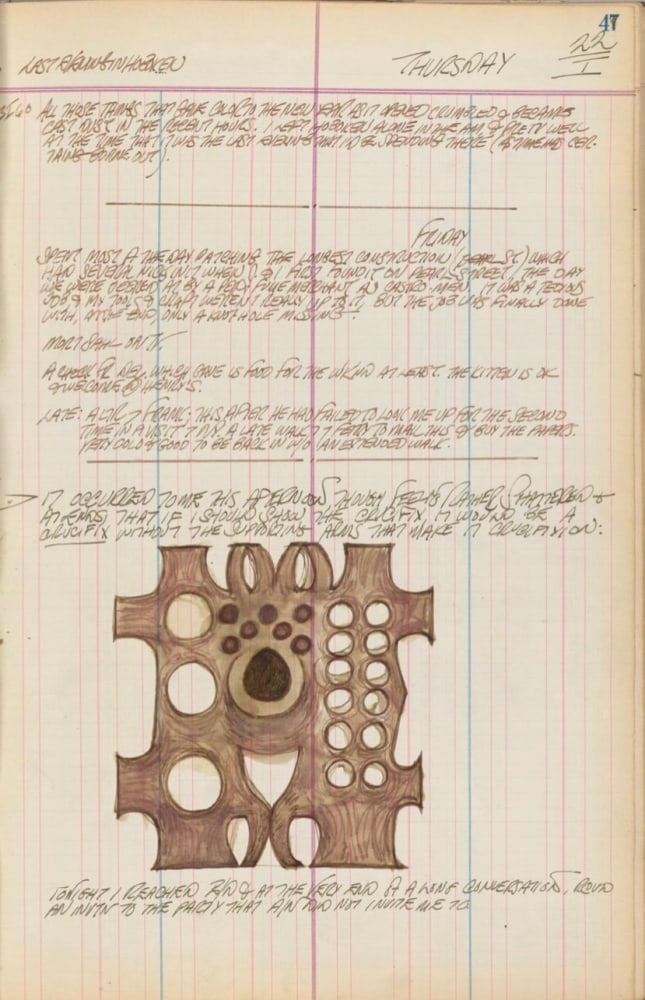 47
LAST EVENING IN HOBOKEN
THURSDAY
22
I
ALL THOSE THINGS THAT GAVE COLOR TO THE NEW YEAR AS IT OPENED CRUMBLED & BECAME
CAST DUST IN THE RECENT HOURS. I LEFT HOBOKEN ALONE IN THE AM & WELL
AT THE TIME THAT IT WAS THE LAST EVENING THAT I'D BE SPENDING THERE (AS TIME HAS CER-
TAINLY BORNE OUT).
FRIDAY
SPENT MOST OF THE DAY PATCHING THE LONGEST CONSTRUCTION (PEARL ST.) WHICH
HAD SEVERAL NICKS IN IT WHEN I FIRST FOUND IT ON PEARL STREET, THE DAY
WE WERE BY A MERCHANT CASTRO-MEN. IT WAS A TEDIOUS
JOB & MY TOOLS & CRAFT WEREN'T REALLY UP TO IT, BUT THE JOB WAS FINALLY DONE
WITH, AT THE END, ONLY A KNOTHOLE MISSING.
MORT SAHL ON TV.
A CHECK FR WHICH GAVE US FOOD FOR THE WKND AT LEAST. THE KITTEN IS OK
& WELCOME @ HENRY'S.
LATE: A FRANK: THIS AFTER HE HAD FAILED TO LOOK ME UP FOR THE SECOND
TIME IN A VISIT MY A LATE WALK FERRY TO MAIL THIS & BUY THE PAPERS.
VERY COLD & GOOD TO BE BACK IN AN EXTENDED WALK.
IT OCCURRED TO ME THIS AFTERNOON THOUGH FEELING RATHER SHATTERED &
AT ENDS, THAT IF I SHOULD SHOW THE CRUCIFIX IT WOULD BE A
CRUCIFIX WITHOUT THE SUPPORTING ARMS THAT MAKE IT CRUCIFIXION:
TONIGHT I REACHED & AT THE VERY END OF A LONG CONVERSATION,
AN INVTN TO THE PARTY THAT DID NOT INVITE ME TO